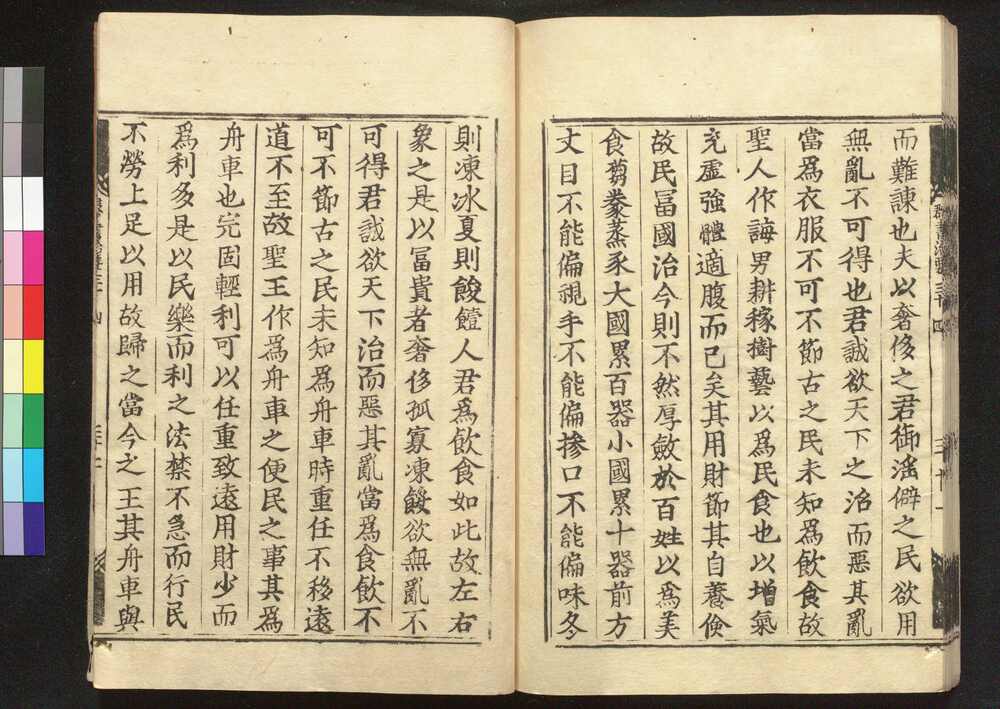 而難諫也夫以奢侈之君御滛僻之民欲用
無亂不可得也君誠欲天下之治而惡其亂
當爲衣服不可不節古之民未知爲飲食故
聖人作誨男耕稼樹藝以爲民食也以増氣
充虛強體適腹而已矣其用財節其自養儉
故民冨國治今則不然厚斂於百姓以爲美
食芻豢蒸豕大國累百器小國累十器前方
丈目不能偏視手不能偏摻口不能偏味冬
則凍冰夏則餕饐人君爲飲食如此故左右
象之是以冨貴者奢侈孤寡凍餒欲無亂不
可得君誠欲天下治而惡其亂當爲食飲不
可不節古之民未知爲舟車時重任不移遠
道不至故聖王作爲舟車之便民之事其爲
舟車也完固輕利可以任重致遠用財少而
爲利多是以民樂而利之法禁不急而行民
不勞上足以用故歸之當今之王其舟車與